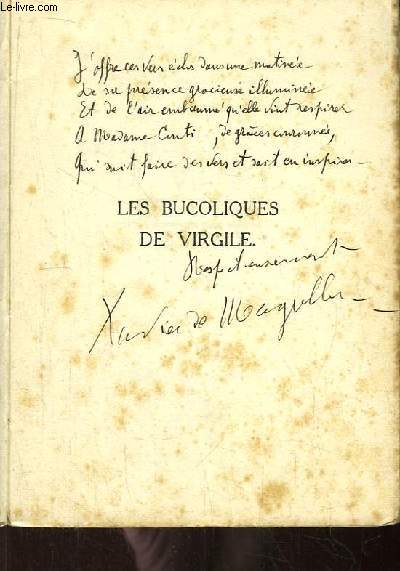 Le-livre.com
J'offre ces vers éclos dans une matinée
de sa présence gracieuse illuminée
Et de l'air embaumé qu'elle vint respirer
A Madame Conti, de grâces couronnée,
Qui sait faire des vers et sait en inspirer
LES BUCOLIQUES
DE VIRGILE.
Respectueusement
Xavier de Magallon